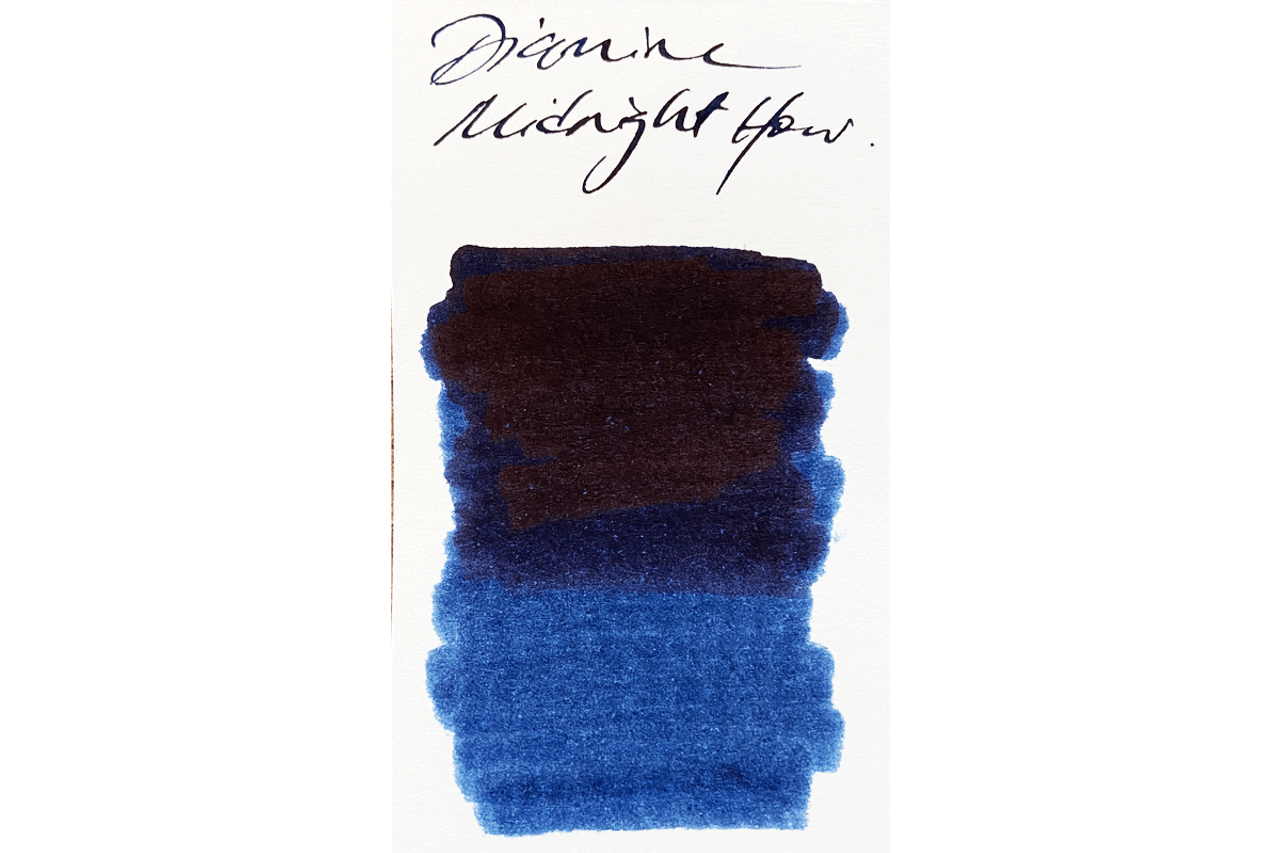 Diamine
Midnight Hour.